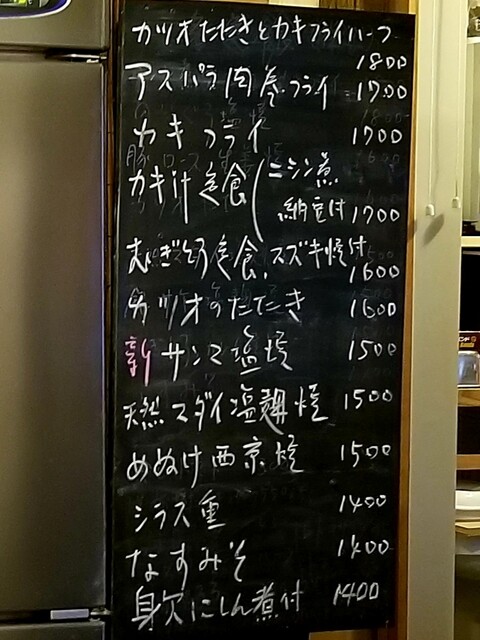 カツオたたきとカキフライハーフ
1800
アスパラ肉巻フライ 1700
カキフライ 1700
カキ汁定食(ニシン煮
納豆付 1700
むぎとろ定食、スズキ焼付
1600
カツオのたたき 1600
新サンマ塩焼 1500
天然マダイ塩麹焼 1500
めぬけ西京焼 1500
シラス重 1400
なすみそ 1400
身欠にしん煮付 1400